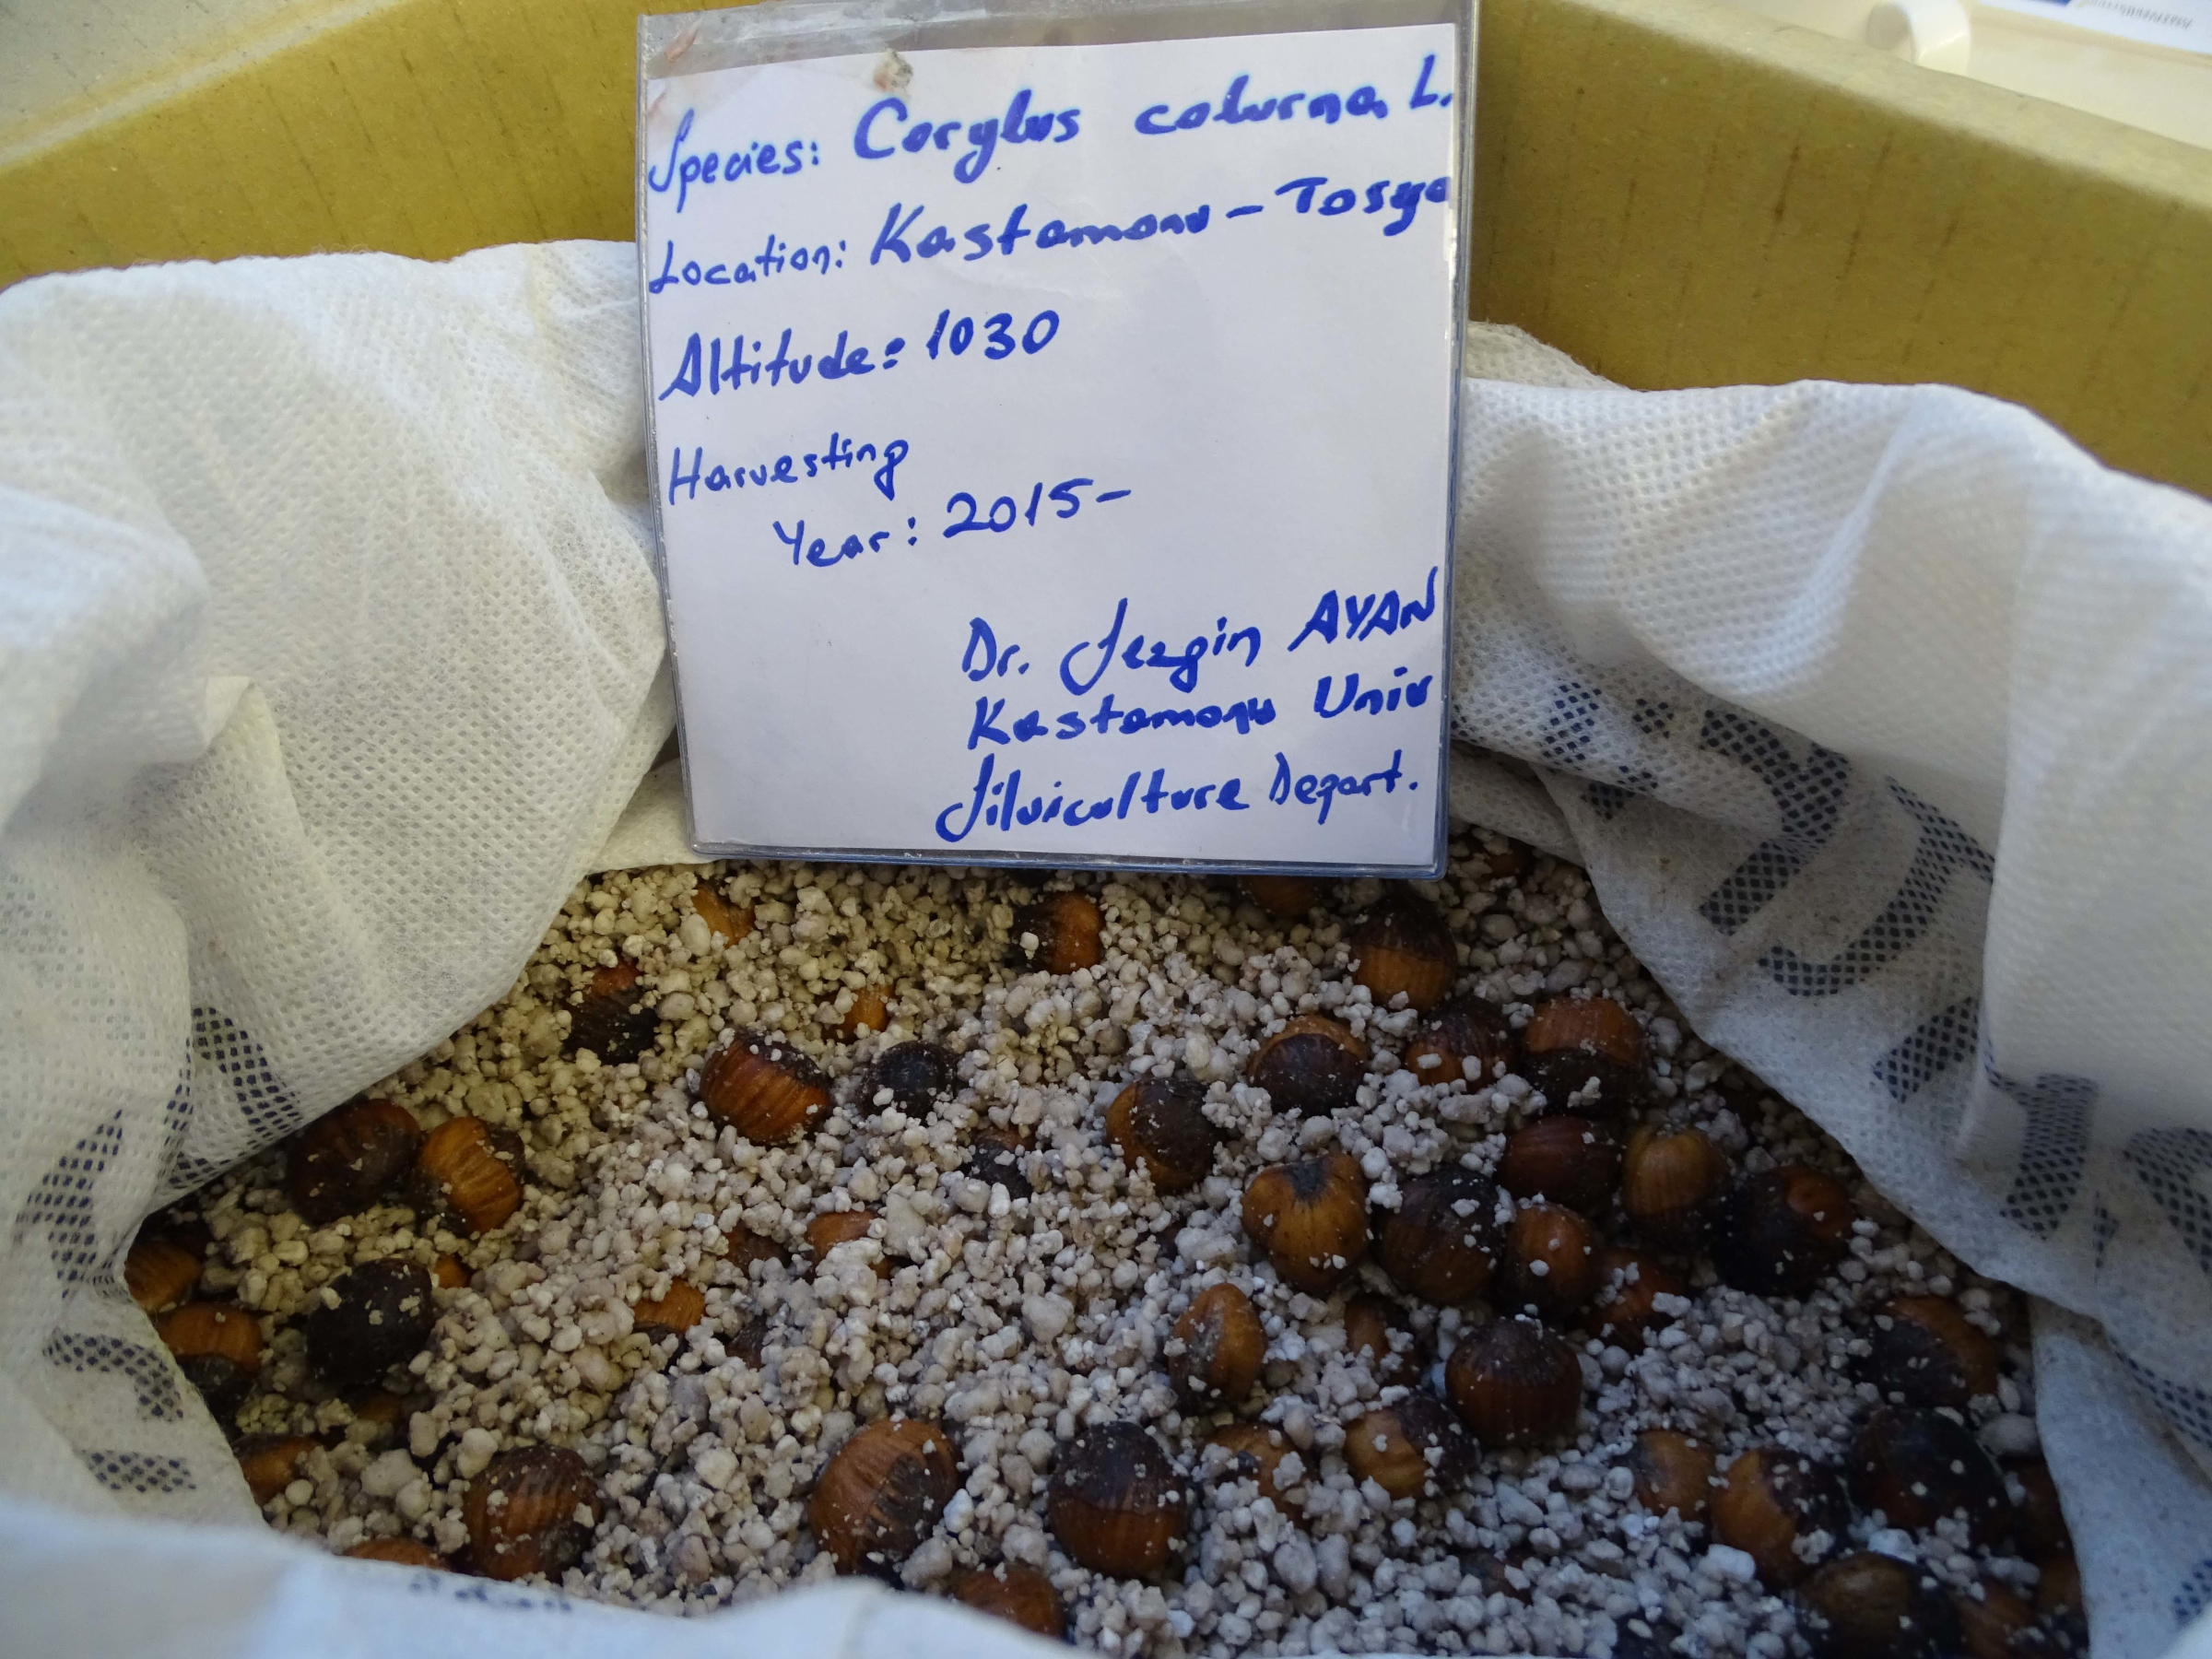 Species: Corylus colurna L.
Location: Kastamonu - Tosya
Altitude: 1030
Harvesting
Year: 2015-
Dr. Sezgin AYAN
Kastamonu Univ
Silviculture Depart.